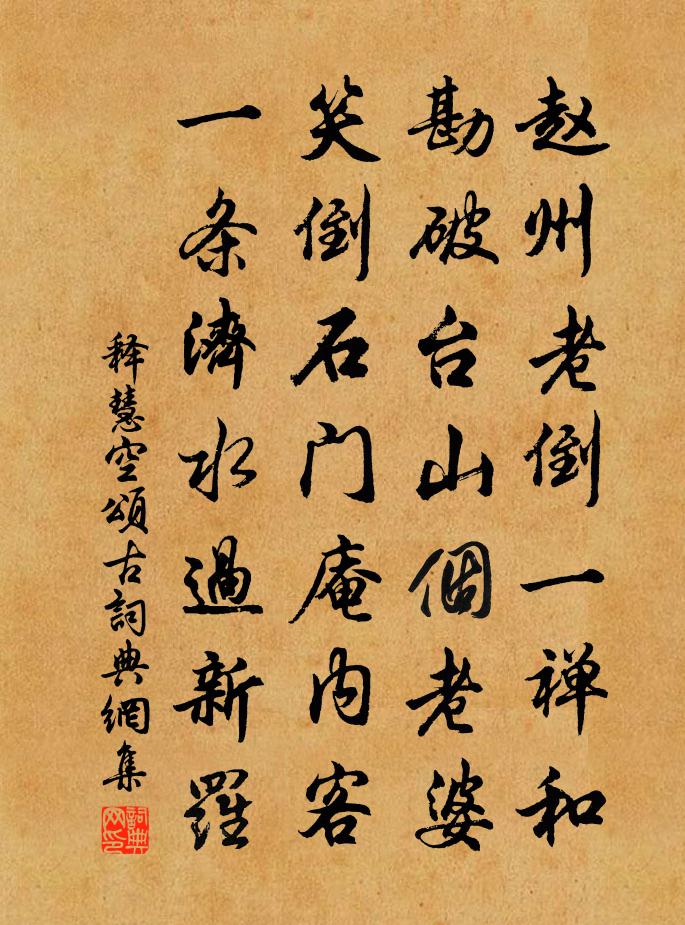 赵州老倒一禅和
勘破台山個老婆
笑倒石门庵内客
一条濟水過新羅
释慧空頌古詞典網集
詞典网印